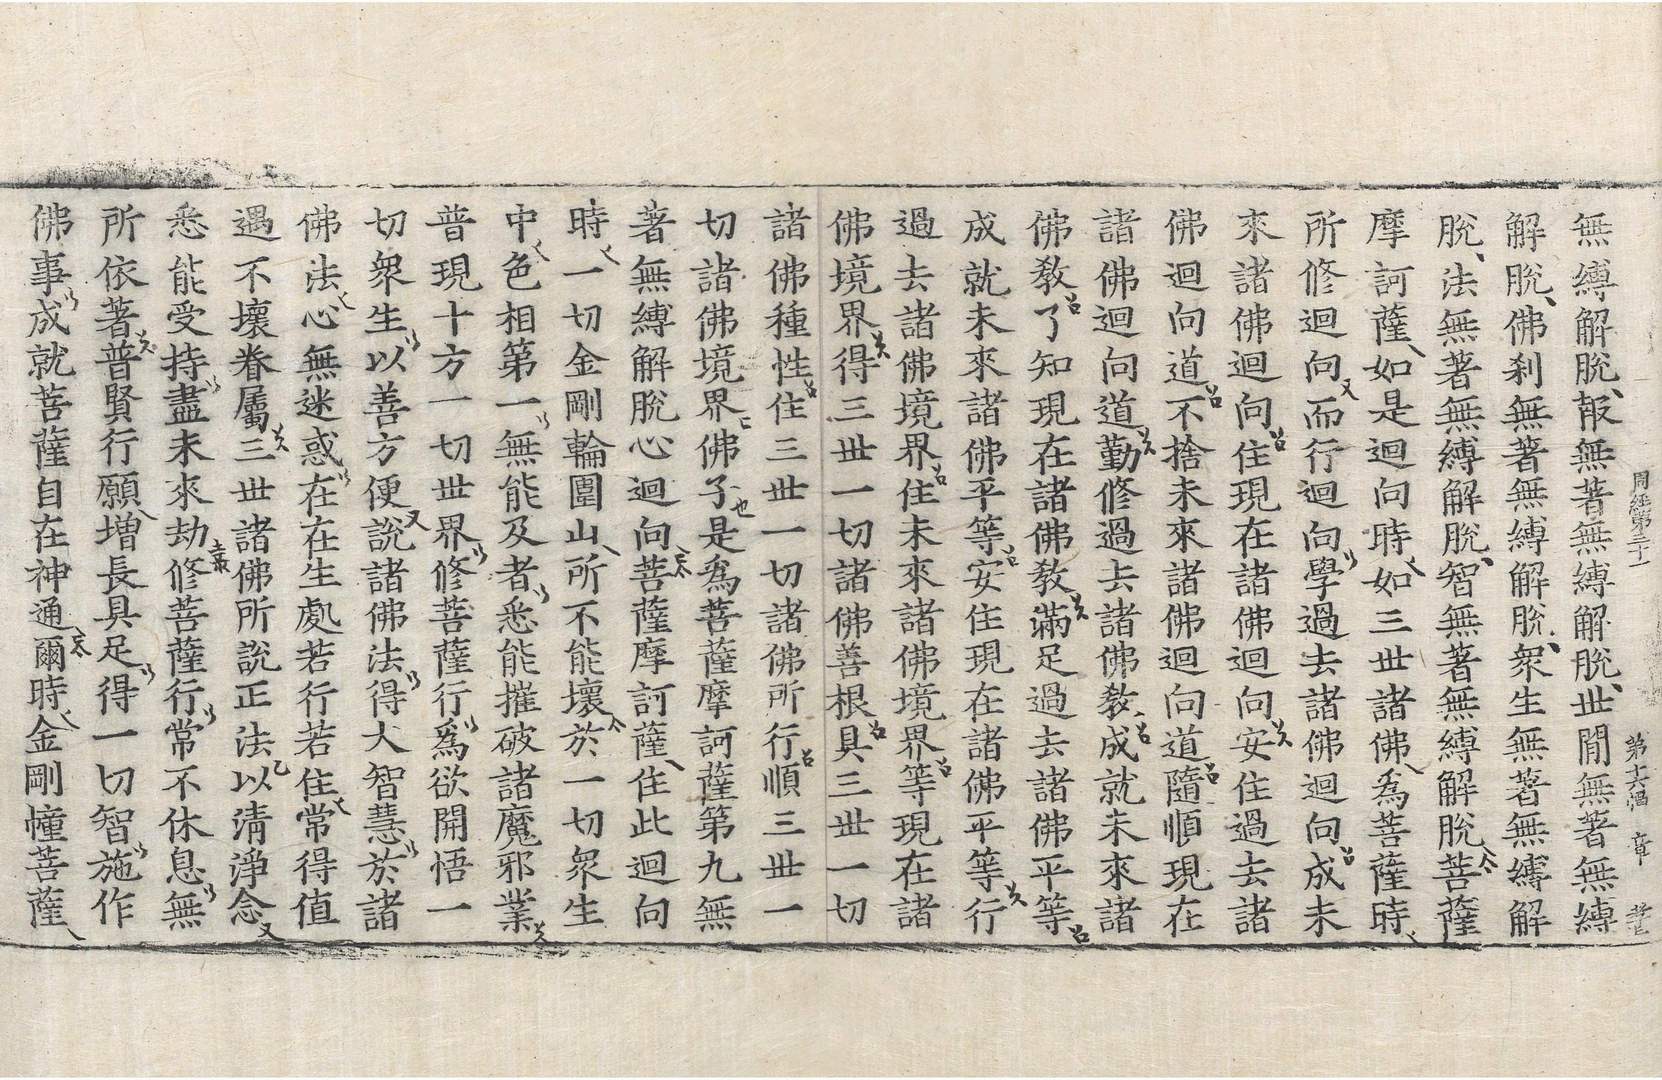 周經第三十一 第十六 章
無縛解脫報無著無縛解脫世間無著無縛
解脫佛刹無著無縛解脫衆生無著無縛解
脫法無著無縛解脫智無著無縛解脫菩薩
摩訶薩如是迴向時如三世諸佛爲菩薩時
所修迴向而行迴向學過去諸佛迴向成未
來諸佛迴向住現在諸佛迴向安住過去諸
佛迴向道不捨未來諸佛迴向道隨順現在
諸佛迴向道勤修過去諸佛教成就未來諸
佛教了知現在諸佛教滿足過去諸佛平等
成就未來諸佛平等安住現在諸佛平等行
過去諸佛境界住未來諸佛境界等現在諸
佛境界得三世一切諸佛善根具三世一切
諸佛種性住三世一切諸佛所行順三世一
切諸佛境界佛子是爲菩薩摩訶薩第九無
著無縛解脫心迴向菩薩摩訶薩住此迴向
時一切金剛輪圍山所不能壞於一切衆生
中色相第一無能及者悉能摧破諸魔邪業
普現十方一切世界修菩薩行爲欲開悟一
切衆生以善方便說諸佛法得大智慧於諸
佛法心無迷惑在在生處若行若住常得值
遇不壞眷屬三世諸佛所說正法以清淨念
悉能受持盡未來劫修菩薩行常不休息無
所依著普賢行願增長具足得一切智施作
佛事成就菩薩自在神通爾時金剛幢菩薩